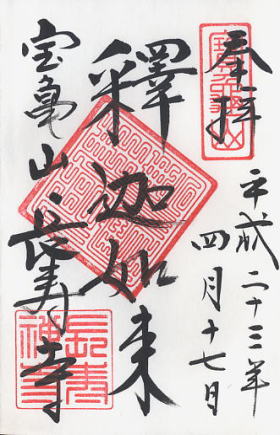 奉拝
平成二十三年
四月十七日
釋迦如来
宝亀山長寿寺